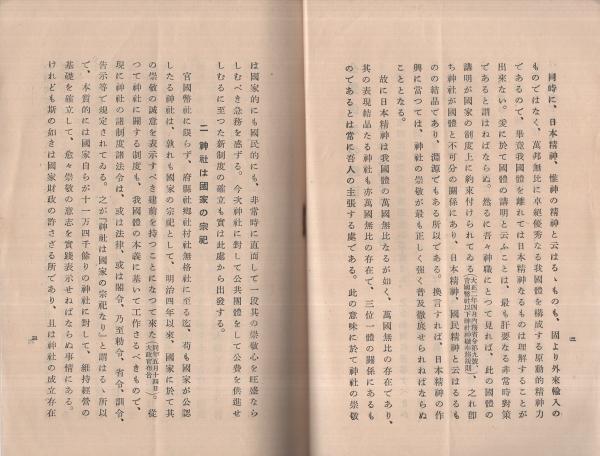 同時に、日本精神、惟神の精神と云はるゝものも、固より外來輸入の
ものではなく、萬邦無比に卓絶優秀なる我國體を構成する原動的精神力
であるので、畢竟我國體を離れては日本精神なるものは理解することが
出來ない。爰に於て國體の講明と云ふことは、最も肝要なる非常時對策
であると謂はねばならぬ。然るに吾々神職にとつて見れば、此の國體の
講明が國家の制度上に約束付けられてゐる(大正二年四月內務省令第九號、官國幣社以下神社神職奉務規則)、之れ卽
ち神社が國體と不可分の關係にあり、日本精神、國民精神と云はるるも
のの結晶であり、淵源でもある所以である。換言すれば、日本精神の作
興に當つては、神社の崇敬が最も正しく强く普及徹底せられねばならぬ
こととなる。
故に日本精神は我國體の萬國無比なるが如く、萬國無比の存在であり、
其の表現結晶たる神社も亦萬國無比の存在で、三位一體の關係にあるも
のであるとは常に吾人の主張する處である。此の意味に於て神社の崇敬
は國家的にも國民的にも、非常時に直面して一段其の崇敬心を旺盛なら
しむべき急務を感ずる。今次神社に對して公共團體をして公費を供進せ
しむるに至つた新制度の確立も實は此處から出發する。
二 神社は國家の宗祀
官國幣社に限らず、府縣社鄕社村社無格社に至る迄、苟も國家が公認
したる神社は、孰れも國家の宗祀として、明治四年以來、國家に於て其
の崇敬の誠意を表示すべき建前を持つことになつて來た(同年五月十四日太政官布告)。從
つて神社に關する制度も、我國體の本義に基いて工作さるべきもので、
現に神社の諸制度諸法令は、或は法律、或は閣令、乃至勅令、省令、訓令、
告示等で規定されてゐる。之が『神社は國家の宗祀なり』と謂はるゝ所以
で、本質的には國家自らが十一萬四千餘りの神社に對して、維持經營の
基礎を確立して、愈々崇敬の意志を實踐表示せねばならぬ事情にある。
けれども斯の如きは國家財政の許さざる所であり、且は神社の成立存在